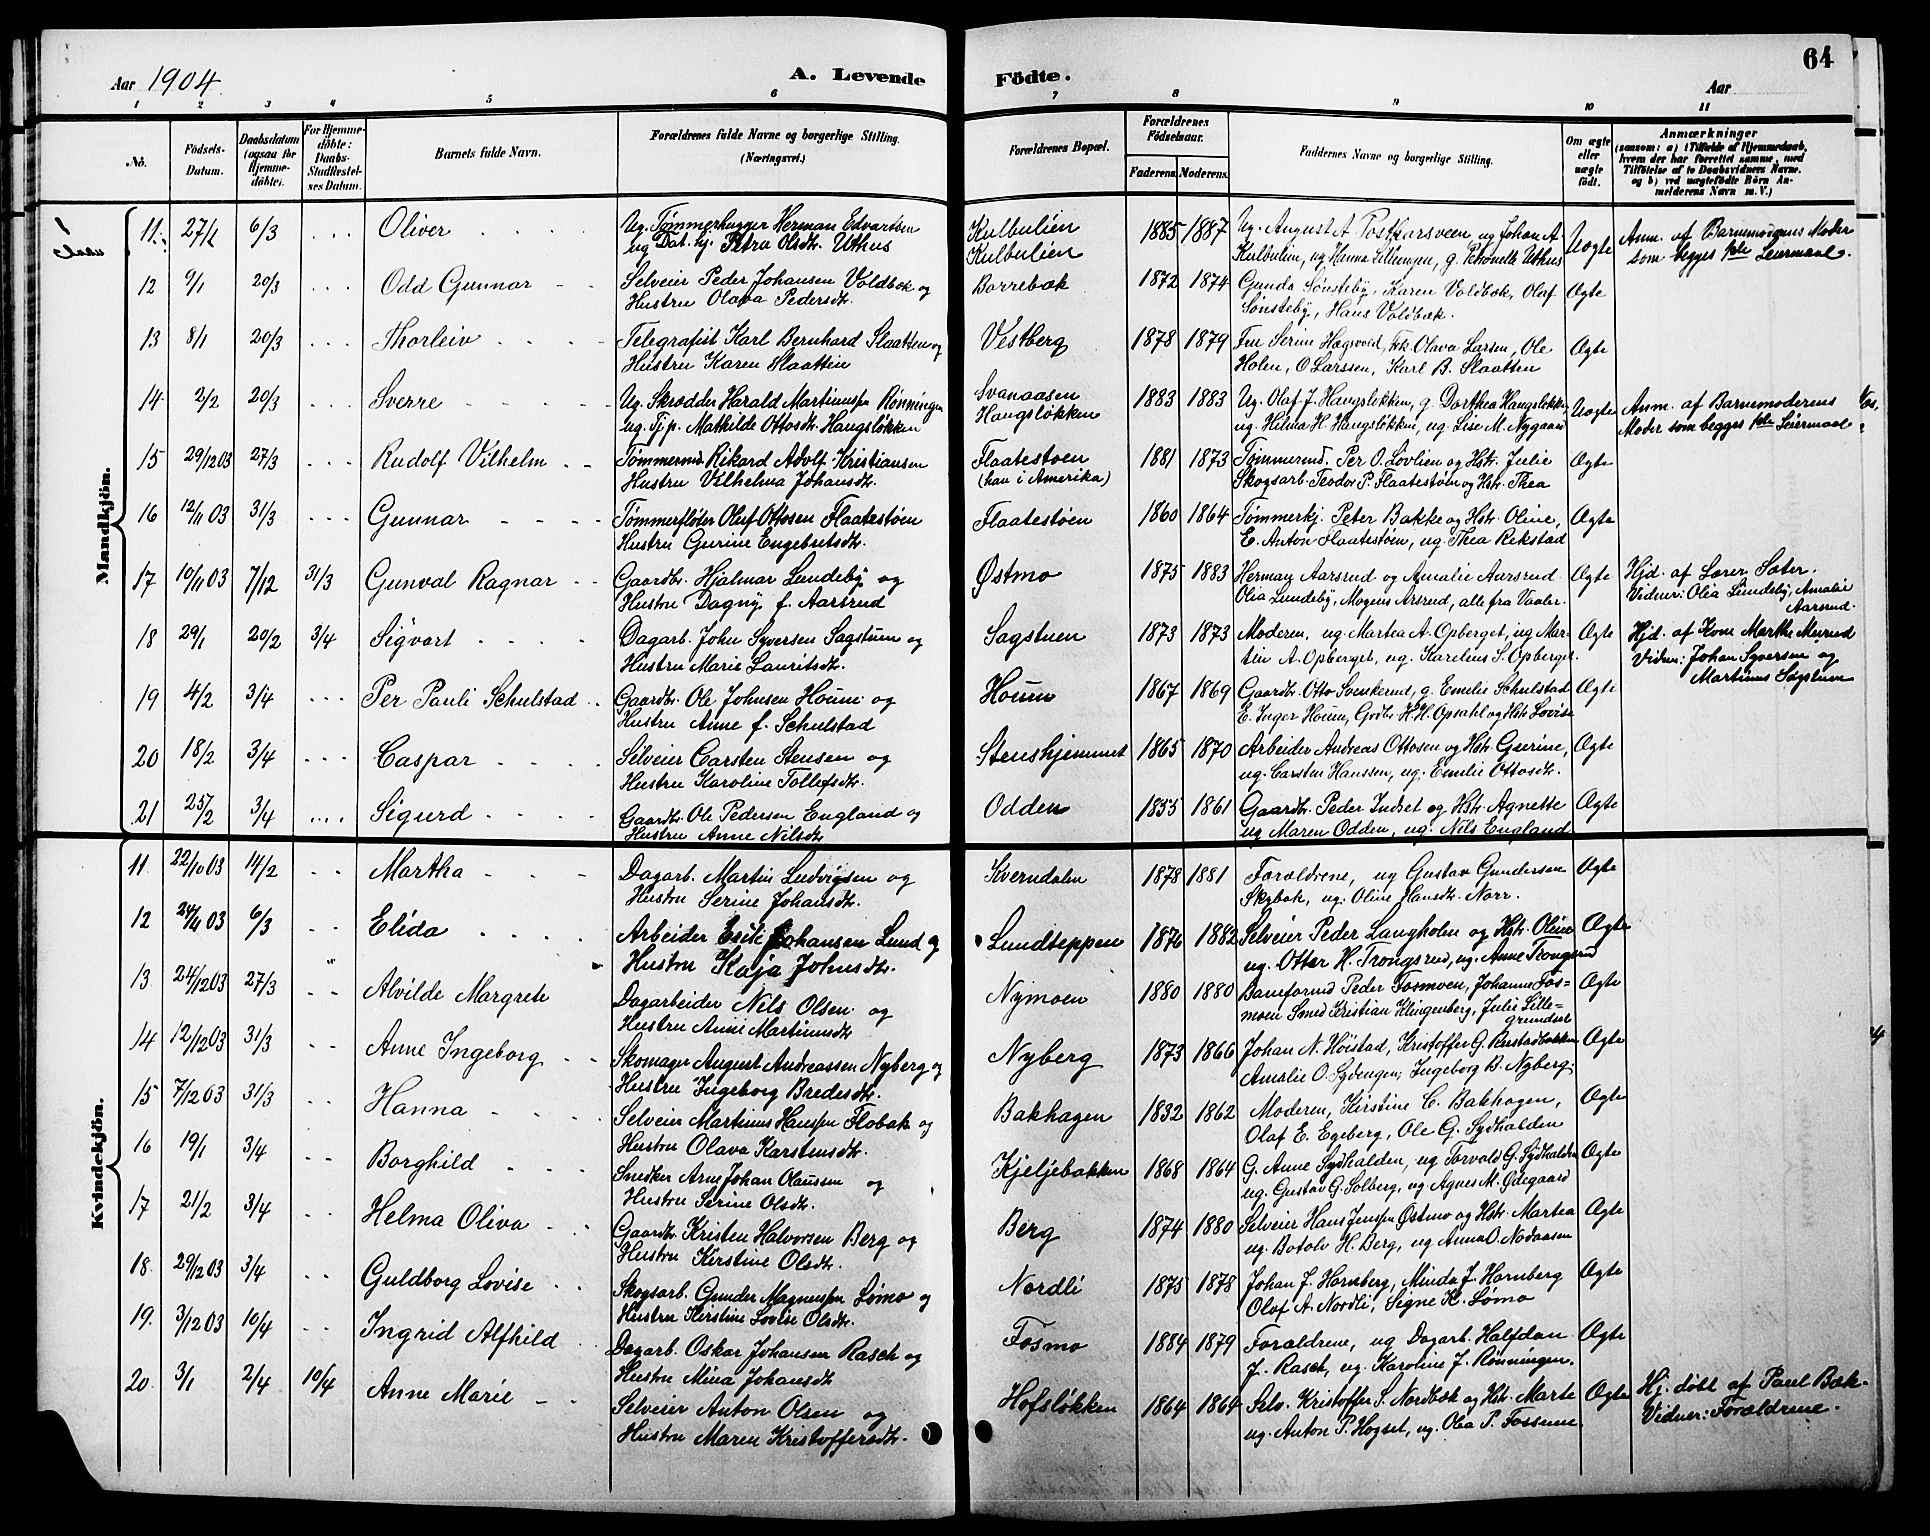 Aar 1904.
A. Levende Födte.
Aar
64
1 2 3 4 5 6 7 8 9 10 11
No.
Födsels-Datum.
Daabsdatum (ogsaa for Hjemme-döbte).
For Hjemme-döbte: Daabs-Stadfæstel-ses Datum.
Barnets fulde Navn.
Forældrenes fulde Navne og borgerlige Stilling. (Næringsvei.)
Forældrenes Bopæl.
Forældrenes Födselsaar.
Faderens. Moderens.
Faddernes Navne og borgerlige Stilling.
Om ægte eller uægte födt.
Anmærkninger
(saasom: a) i Tilfælde af Hjemmedaab, hvem der har forrettet samme, med Tilföielse af to Daabsvidners Navne. og b) ved uægtefödte Börn An-melderens Navn m. V.)
Mandkjön.
11. 27/1 6/3 Oliver Ug. Tømmerhugger Herman Edvartsen Kulbulien 1885 1887 Ug. August A. Postkarsveen ug Johan A. Uægte Anm. af Barnemoderens Moder
ug Dat. hj. Petra Olsdt. Uthus Kulbulien Kulbulien, ug Hanna Lillengen, g. Petronelle Uthus som begges 1ste Leiermaal.
12 9/1 20/3 Odd Gunnar Selveier Peder Johansen Voldbæk og Borrebæk 1872 1874 Gunda Sønsteby, Karen Voldbæk, Olaf Ægte
Hustru Olava Pedersdt. Sønsteby, Hans Voldbæk.
13 8/1 20/3 Thorleiv Telegrafist Karl Bernhard Slaatten og Vestberg 1878 1879 Fru Serine Hagevold, Frk. Olava Larsen, Ole Ægte
Hustru Karen Slaatten Holen, O Larssen, Karl B. Slaatten
14 2/2 20/3 Sverre Ug. Skrædder Harald Martinussen Rønningen Svanaasen 1883 1883 Ug. Olaf J. Haugsløkken, g. Dorthea Haugsløkken Uægte Anm. af Barnemoderens
ug. Tj.p. Mathilde Ottosdt. Haugsløkken Haugsløkken ug. Hilma H. Haugsløkken, ug. Lise M. Nygaard Moder som begges 1ste Leiermaal
15 29/12 03 27/3 Rudolf Vilhelm Tømmermd. Rikard Adolf Kristiansen Flaatestøen 1881 1873 Tømmermd. Per O. Løvlien og Hstr. Julie Ægte
Hustru Vilhelma Johansdt. (han i Amerika) Skogsarb. Teodor P. Flaatestøen og Hstr. Thea
16 12/11 03 31/3 Gunnar Tømmerfløter Oluf Ottosen Flaatestøen Flaatestøen 1860 1864 Tømmerkj. Peter Bakke og Hstr. Oline, Ægte
Hustru Gurine Engebretsdt. E. Anton Flaatestøen, ug. Thea Rekstad
17 10/11 03 7/12 31/3 Gunval Ragnar Gaardbr. Hjalmar Lundeby og Østmo 1875 1883 Herman Aarsrud og Amalie Aarsrud Ægte Hjd. af Lærer Sæter.
Hustru Dagny f. Aarsrud Olea Lundeby, Mogens Arsrud, alle fra Vaaler. Vidner: Olea Lundeby, Amalie
Aarsrud.
18 29/1 20/2 3/4 Sigvart Dagarb. John Syversen Sagstuen og Sagstuen 1873 1873 Moderen, ug. Martea A. Opberget, ug. Mar- Ægte Hjd. af Kone Marthe Murud
Hustru Marie Lauritsdt. tin A. Opberget, ug. Karelius S. Opberget. Vidner: Johan Syversen og
Martinus Sagstuen
19 4/2 3/4 Per Pauli Schulstad Gaardbr. Ole Johnsen Houm og Houm 1867 1869 Gaardbr. Otto Svenkerud, g. Emilie Schulstad Ægte
Hustru Anne f. Schulstad E. Inger Houm, Grdbr. H. H. Opsahl og Hstr. Lovise
20 18/2 3/4 Caspar Selveier Carsten Stensen og Stenshjemmet 1865 1870 Arbeider Andreas Ottosen og Hstr. Gurine, Ægte
Hustru Karoline Tollefsdt. ug. Carsten Hanssen, ug. Emilie Ottosdt.
21 25/2 3/4 Sigurd Gaardbr. Ole Pedersen England og Odden 1855 1861 Gaardbr. Peder Indset og Hstr. Agnette Ægte
Hustru Anne Nilsdt. ug Maren Odden, ug. Nils England
Kvindekjön.
11. 22/10 03 14/2 Martha Dagarb. Martin Ludvigsen og Kverndalen 1878 1881 Forældrene, ug Gustav Gundersen Ægte
Hustru Serine Johansdt. Skybak, ug. Oline Hansdt. Norr.
12 24/11 03 6/3 Elida Arbeider Johansen Lund og Lundteppen 1876 1882 Selveier Peder Langholm og Hstr. Oline Ægte
Hustru Kaja Johnsdt. ug. Otter H. Trongsrud, ug. Anne Trongsrud
13 24/12 03 27/3 Alvilde Margrete Dagarbeider Nils Olsen og Nymoen 1880 1880 Baneformd Peder Fosmoen, Johanne Fos- Ægte
Hustru Anne Martinusdt. moen Smed Kristian Klingenberg, Julie Lille-
grundset
14 12/12 03 31/3 Anne Ingeborg Skomager August Andreassen Nyberg og Nyberg 1873 1866 Johan N. Høistad, Kristoffer G. Rustadbakken Ægte
Hustru Ingeborg Bredesdt. Amalie O. Sydengen, Ingeborg B. Nyberg.
15 7/12 03 31/3 Hanna Selveier Martinus Hanssen Flobak og Bakhagen 1832 1862 Moderen, Kirstine C. Bakhagen, Ægte
Hustru Olava Karstensdt. Olaf E. Egeberg, Ole G. Sydhalden
16 19/1 3/4 Borghild Snedker Arne Johan Olaussen og Kjeljebakken 1868 1864 G. Anne Sydhalden, ug Torvald G. Sydhalden Ægte
Hustru Serine Olsdt. ug. Gustav G. Solberg, ug Agnes M. Ødegaard
17 21/2 3/4 Helma Oliva Gaardbr. Kristen Halvorsen Berg og Berg 1874 1880 Selveier Hans Jenssen Østmo og Hstr. Martea Ægte
Hustru Kirstine Olsdt. ug. Botolv H. Berg, ug Anna O. Nordaasen
18. 29/12 03 3/4 Guldborg Lovise Skogsarb. Gunder Magnussen Lømo og Nordli 1875 1878 Johan J. Hornberg, Minda J. Hornberg Ægte
Hustru Kirstine Lovise Olsdt. Olaf A. Nordli, Signe K. Lømo
19. 3/12 03 10/4 Ingrid Alfhild Dagarb. Oskar Johansen Rasch og Fosmo 1884 1879 Forældrene, ug Dagarb. Halfdan Ægte
Hustru Mina Johansdt. J. Rasch, ug. Karoline J. Rønningen.
20 3/1 2/4 10/4 Anne Marie Selveier Anton Olsen og Hofsløkken 1864 1864 Selv. Kristoffer S. Nordbæk og Hstr. Marte Ægte Hj. døbt af Paul Bæk.
Hustru Maren Kristoffersdt. ug. Anton P. Hogset, ug. Olea P. Fossum Vidner: Forældrene.